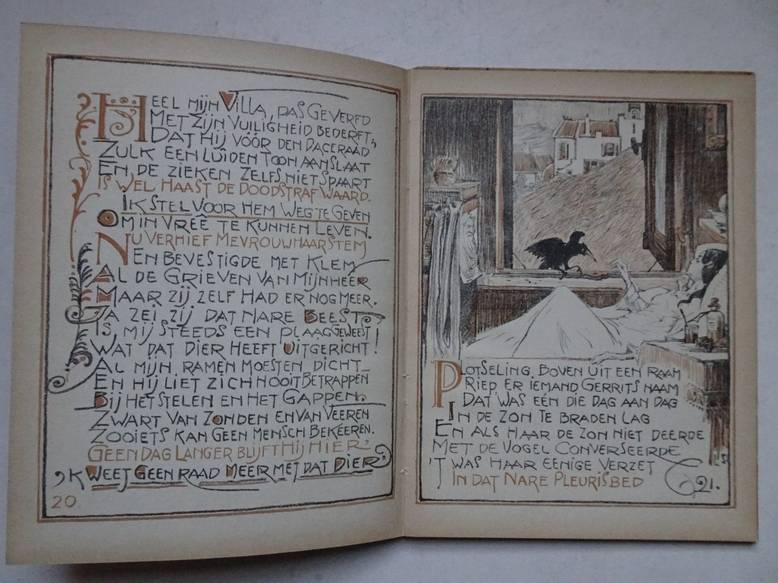 HEEL MIJN VILLA, PAS GEVERFD
MET ZIJN VUILIGHEID BEDERFT,
DAT HIJ VÓÓR DEN DAGERAAD
ZULK EEN LUIDEN TOON AANSLAAT
EN DE ZIEKEN ZELFS NIET SPAART
IS WEL HAAST DE DOODSTRAF WAARD.
IK STEL VOOR HEM WEG TE GEVEN
OM IN VREÊ TE KUNNEN LEVEN.
NU VERHIEF MEVROUW HAAR STEM
EN BEVESTIGDE MET KLEM
AL DE GRIEVEN VAN MIJNHEER
MAAR ZIJ ZELF HAD ER NOG MEER.
JA ZEI ZIJ DAT NARE BEEST
IS, MIJ STEEDS EEN PLAAG GEWEEST
WAT DAT DIER HEEFT UITGERICHT!
AL MIJN RAMEN MOESTEN DICHT
EN HIJ LIET ZICH NOOIT BETRAPPEN
BIJ HET STELEN EN HET GAPPEN.
ZWART VAN ZONDEN EN VAN VEEREN
ZOOIETS KAN GEEN MENSCH BEKEEREN.
GEEN DAG LANGER BLIJFT HIJ HIER
'K WEET GEEN RAAD MEER MET DAT DIER
20
PLOTSELING, BOVEN UIT EEN RAAM
RIEP ER IEMAND GERRITS NAAM
DAT WAS EEN DIE DAG AAN DAG
IN DE ZON TE BRADEN LAG
EN ALS HAAR DE ZON NIET DEERDE
MET DE VOGEL CONVERSEERDE
'T WAS HAAR EENIGE VERZET
IN DAT NARE PLEURISBED
21.